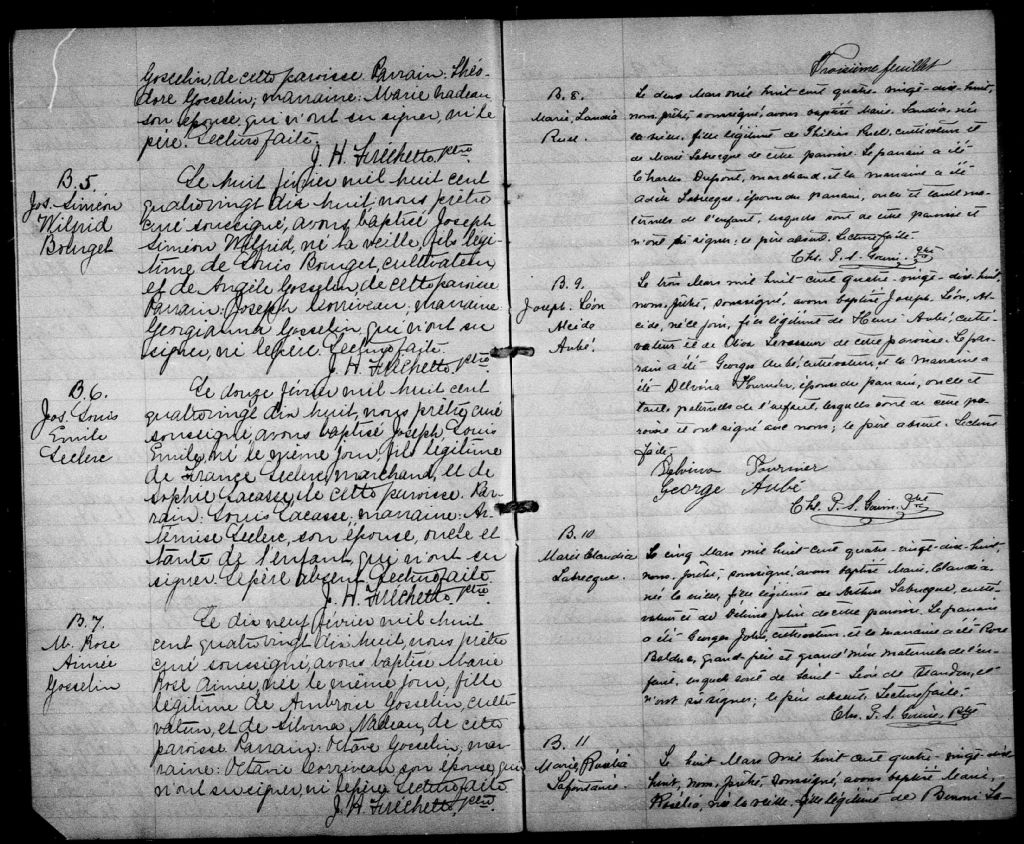 Gosselin, de cette paroisse. Parrain: Théo-
dore Gosselin, marraine: Marie Nadeau
son épouse, qui n'ont su signer, ni le
père. Lecture faite.
J. H. Fréchette, ptre
B. 5
Jos. Siméon
Wilfrid
Bourget
Le huit février mil huit cent
quatrevingt dix huit, nous prêtre
curé soussigné, avons baptisé Joseph
Siméon Wilfrid, né la veille, fils légi-
time de Louis Bourget, cultivateur,
et de Angèle Gosselin, de cette paroisse
Parrain: Joseph Corriveau, marraine
Georgianna Gosselin, qui n'ont su
signer, ni le père. Lecture faite.
J. H. Fréchette, ptre
B. 6.
Jos. Louis
Emile
Leclerc
Le douze février mil huit cent
quatrevingt dix huit, nous prêtre curé
soussigné, avons baptisé Joseph, Louis
Emile, né le même jour, fils légitime
de Leclerc, marchand, et de
Sophie Lacasse, de cette paroisse. Par-
rain: Louis Lacasse, marraine: Ar-
témise Leclerc, son épouse, oncle et
tante de l'enfant, qui n'ont su
signer. Le père absent. Lecture faite
J. H. Fréchette, ptre.
B. 7.
M. Rose
Aimée
Gosselin
Le dix neuf février mil huit
cent quatrevingt dix huit, nous prêtre
curé soussigné, avons baptisé Marie
Rose Aimée, née le même jour, fille
légitime de Ambroise Gosselin, culti-
vateur, et de Nadeau, de cette
paroisse. Parrain: Octave Gosselin, mar-
raine: Octavie Corriveau son épouse, qui
n'ont su signer, ni le père. Lecture faite
J. H. Fréchette, ptre.
Troisième feuillet
B. 8.
Marie, Landia
Ruel.
Le deux Mars mil huit cent quatre-vingt-dix-huit,
nous, prêtre, soussigné, avons baptisé Marie, Landia, née
la veille, fille légitime de Ruel, cultivateur et
de Marie Labrecque de cette paroisse. Le parrain a été
Charles Dupont, marchand, et la marraine a été
Adèle Labrecque, épouse du parrain, oncle et tante ma-
ternels de l'enfant, lesquels sont de cette paroisse et
n'ont su signer; le père absent. Lecture faite.
Chs. P. S. Ptre
B. 9.
Joseph. Léon
Alcide
Aubé.
Le trois Mars mil huit-cent quatre vingt-dix-huit,
nous, prêtre, soussigné, avons baptisé Joseph, Léon, Al-
cide, né ce jour, fils légitime de Henri Aubé, culti-
vateur et de Levasseur de cette paroisse. Le par-
rain a été Georges Aubé, cultivateur, et la marraine a
été Delvina Fournier, épouse du parrain, oncle et
tante paternels de l'enfant, lesquels sont de cette pa-
roisse et ont signé avec nous; le père absent. Lecture
faite.
Delvina Fournier
George Aubé
Chs. P. S. Ptre
B. 10
Marie Claudia
Labrecque.
Le cinq Mars mil huit-cent quatre-vingt-dix-huit,
nous, prêtre, soussigné, avons baptisé Marie, Claudia
née la veille, fille légitime de Arthur Labrecque, culti-
vateur et de Jolin de cette paroisse. Le parrain
a été Georges Jolin, cultivateur, et la marraine a été Rose
Bolduc, grand père et grand'mère maternels de l'en-
fant, lesquels sont de Saint-Léon de Standon, et
n'ont su signer; le père absent. Lecture faite.
Chs. P. S. Ptre
B. 11
Marie, Rosélia
Lafontaine.
Le huit Mars mil huit cent quatre-vingt-dix
huit, nous, prêtre, soussigné, avons baptisé Marie,
Rosélia, née la veille, fille légitime de Benoni La-